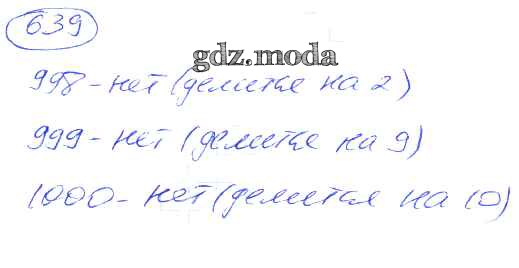 639
gdz.moda
998 - нет (делится на 2)
999 - нет (делится на 9)
1000 - нет (делится на 10)